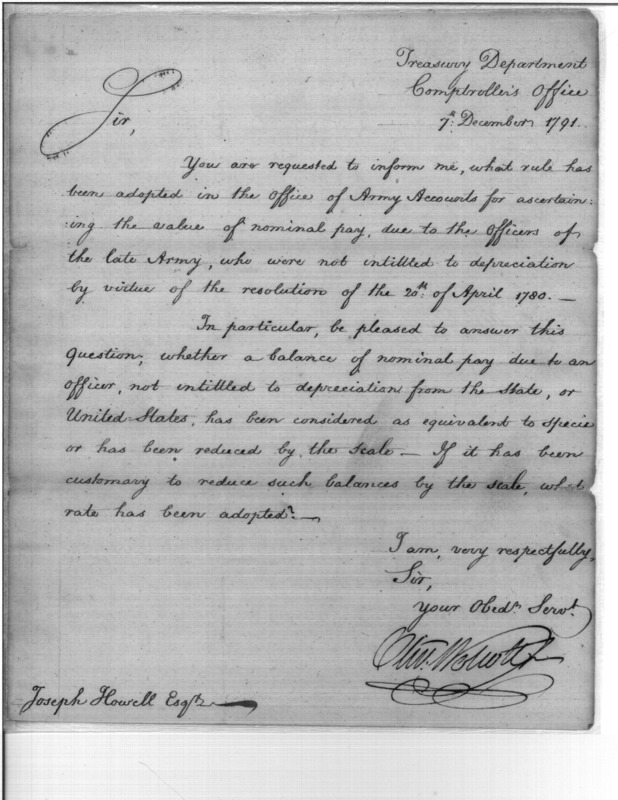 Treasury Department
Comptroller's Office
7th December 1791.
Sir,
You are requested to inform me, what rule has
been adopted in the Office of Army Accounts for ascertain:
:ing the value of nominal pay, due to the Officers of
the late Army, who were not intittled to depreciation
by virtue of the resolution of the 20th of April 1780. —
In particular, be pleased to answer this
Question; whether a balance of nominal pay due to an
Officer, not intittled to depreciation from the State, or
United States, has been considered as equivalent to specie
or has been reduced by the scale — If it has been
customary to reduce such balances by the scale, what
rate has been adopted? —
I am, very respectfully,
Sir,
Your Obedt. Servt.
Oliv. Wolcott Jr
Joseph Howell Esqr.